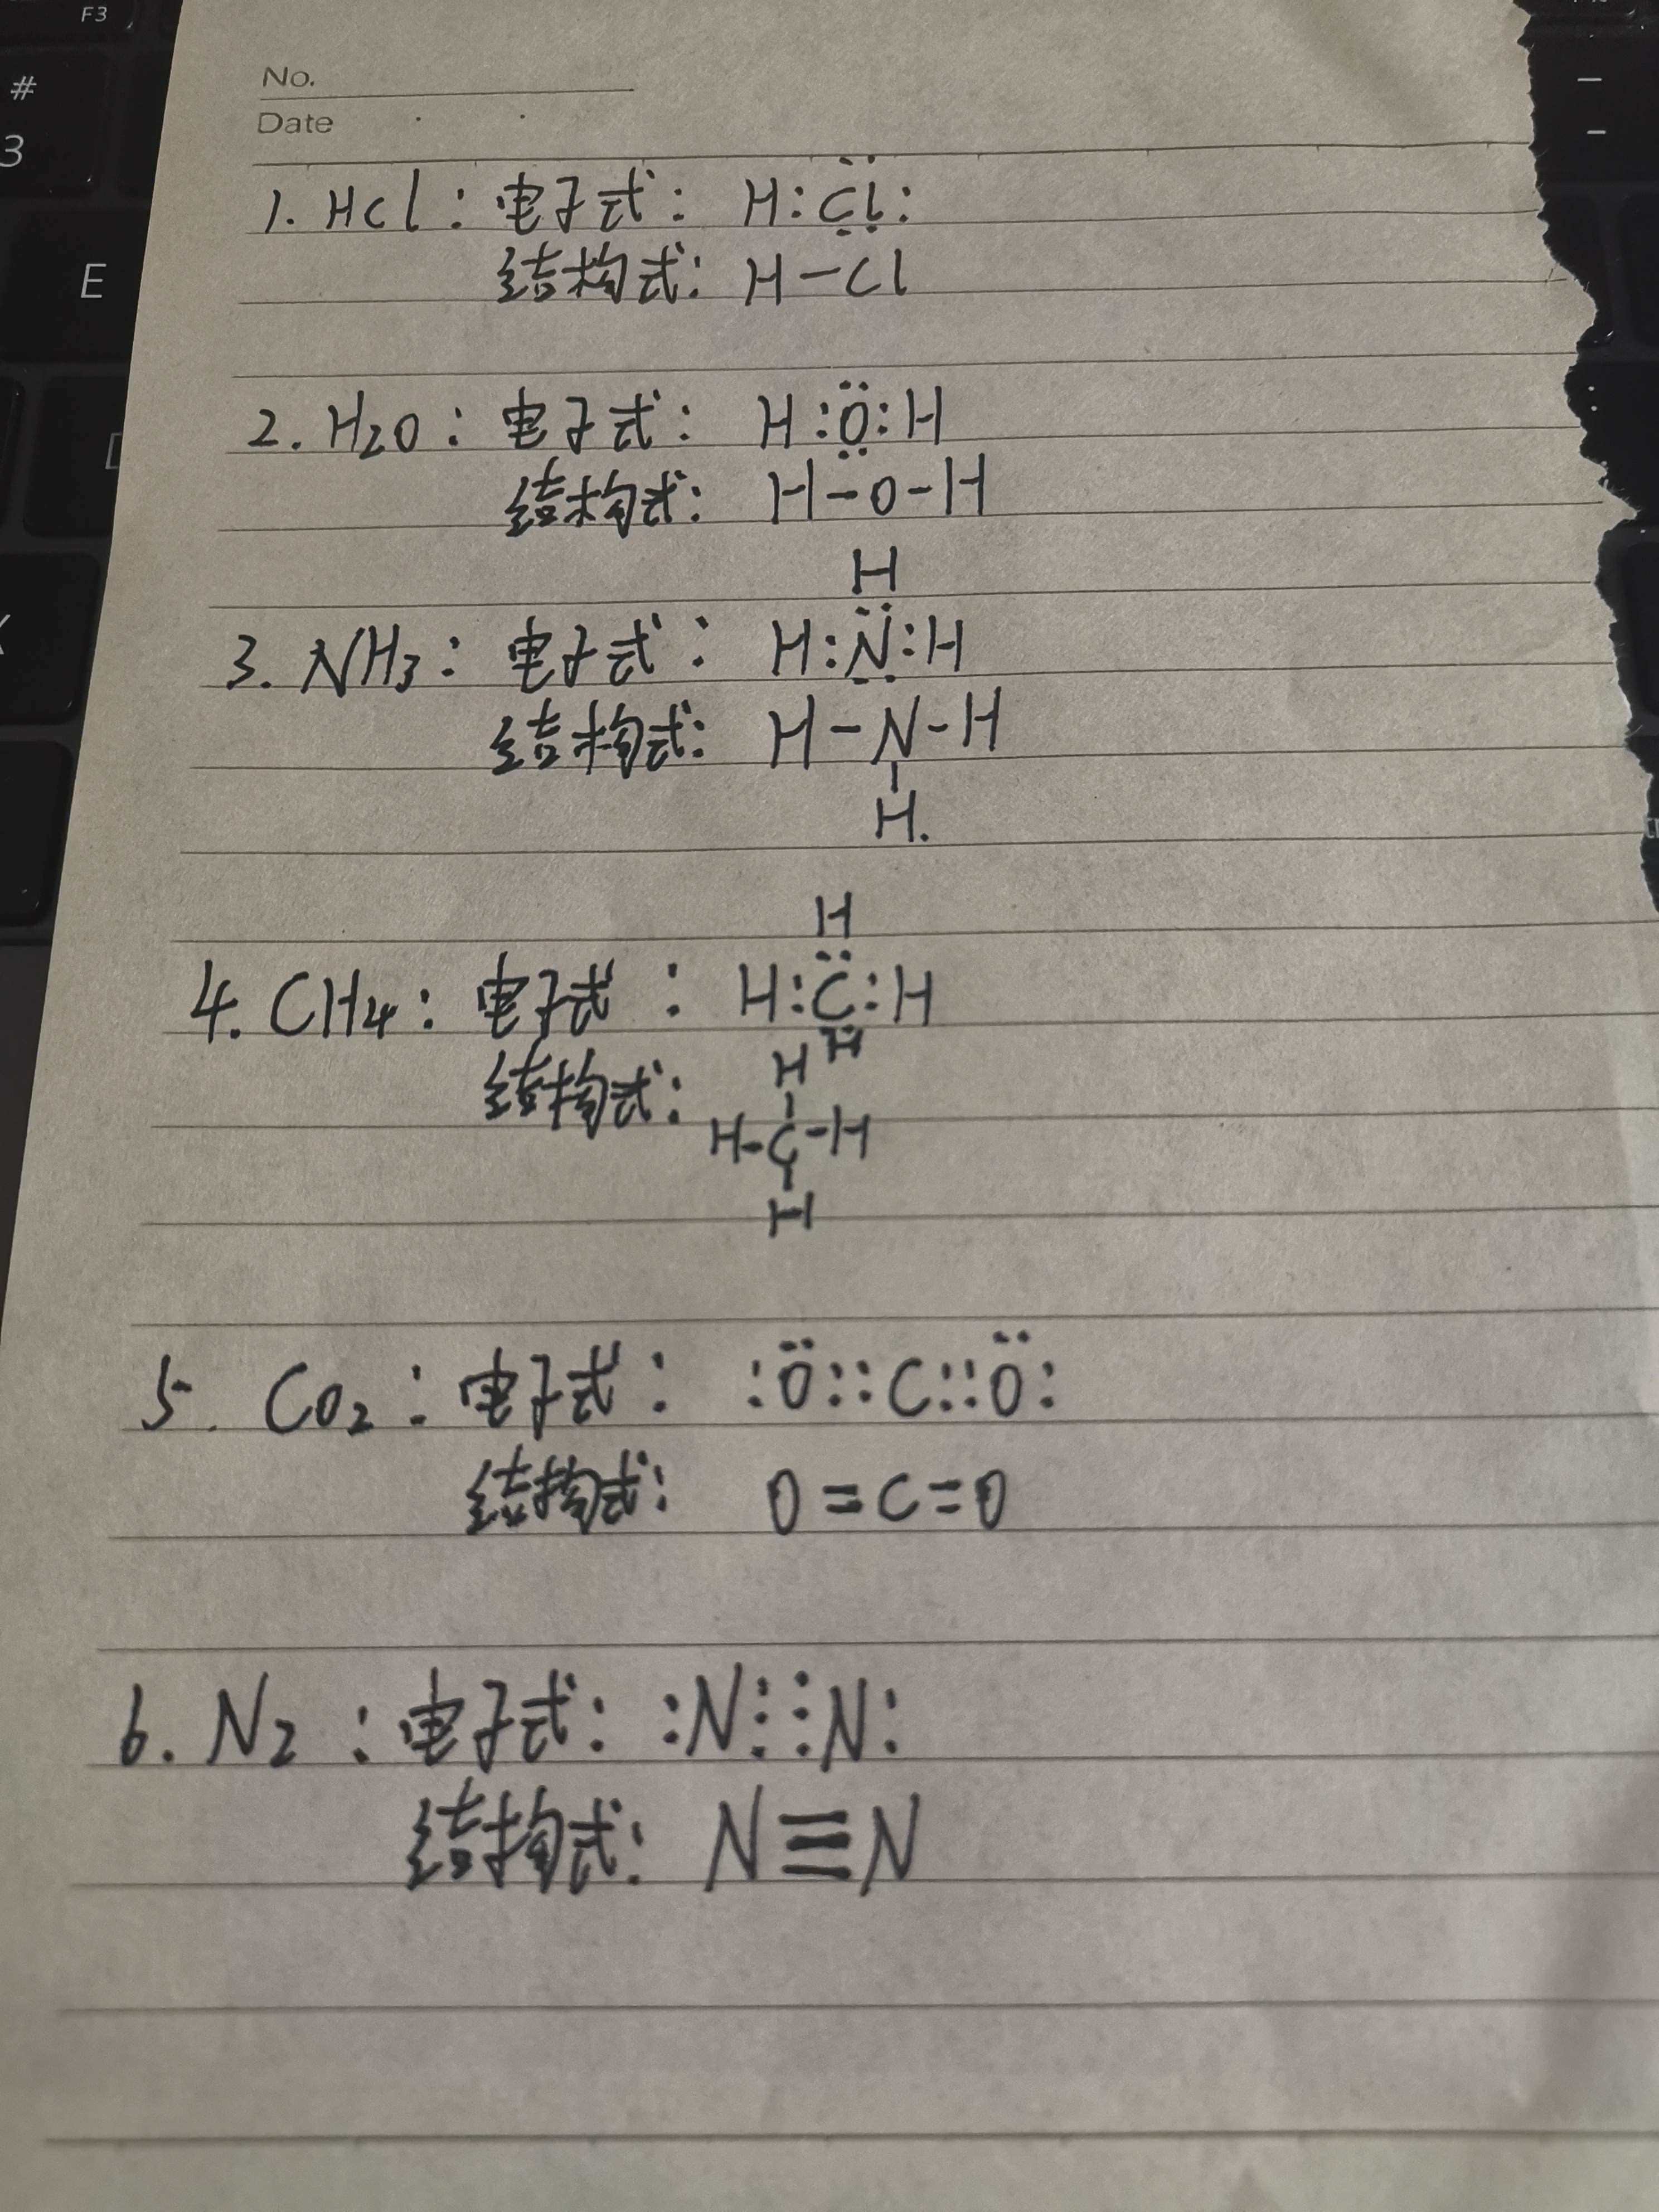 F3
#
3
E
No.
Date
1. HCl：电子式： H:C̤̈l:
结构式： H－Cl
2. H₂O：电子式： H:Ö̤:H
结构式： H－O－H
H
3. NH₃：电子式： H:N̤̈:H
结构式： H－N－H
|
H.
H
4. CH₄：电子式： H:C̤̈:H
H
结构式： H
|
H－C－H
|
H
5. CO₂：电子式： :Ö::C::Ö:
结构式： O=C=O
6. N₂：电子式： :N⋮⋮N:
结构式： N≡N